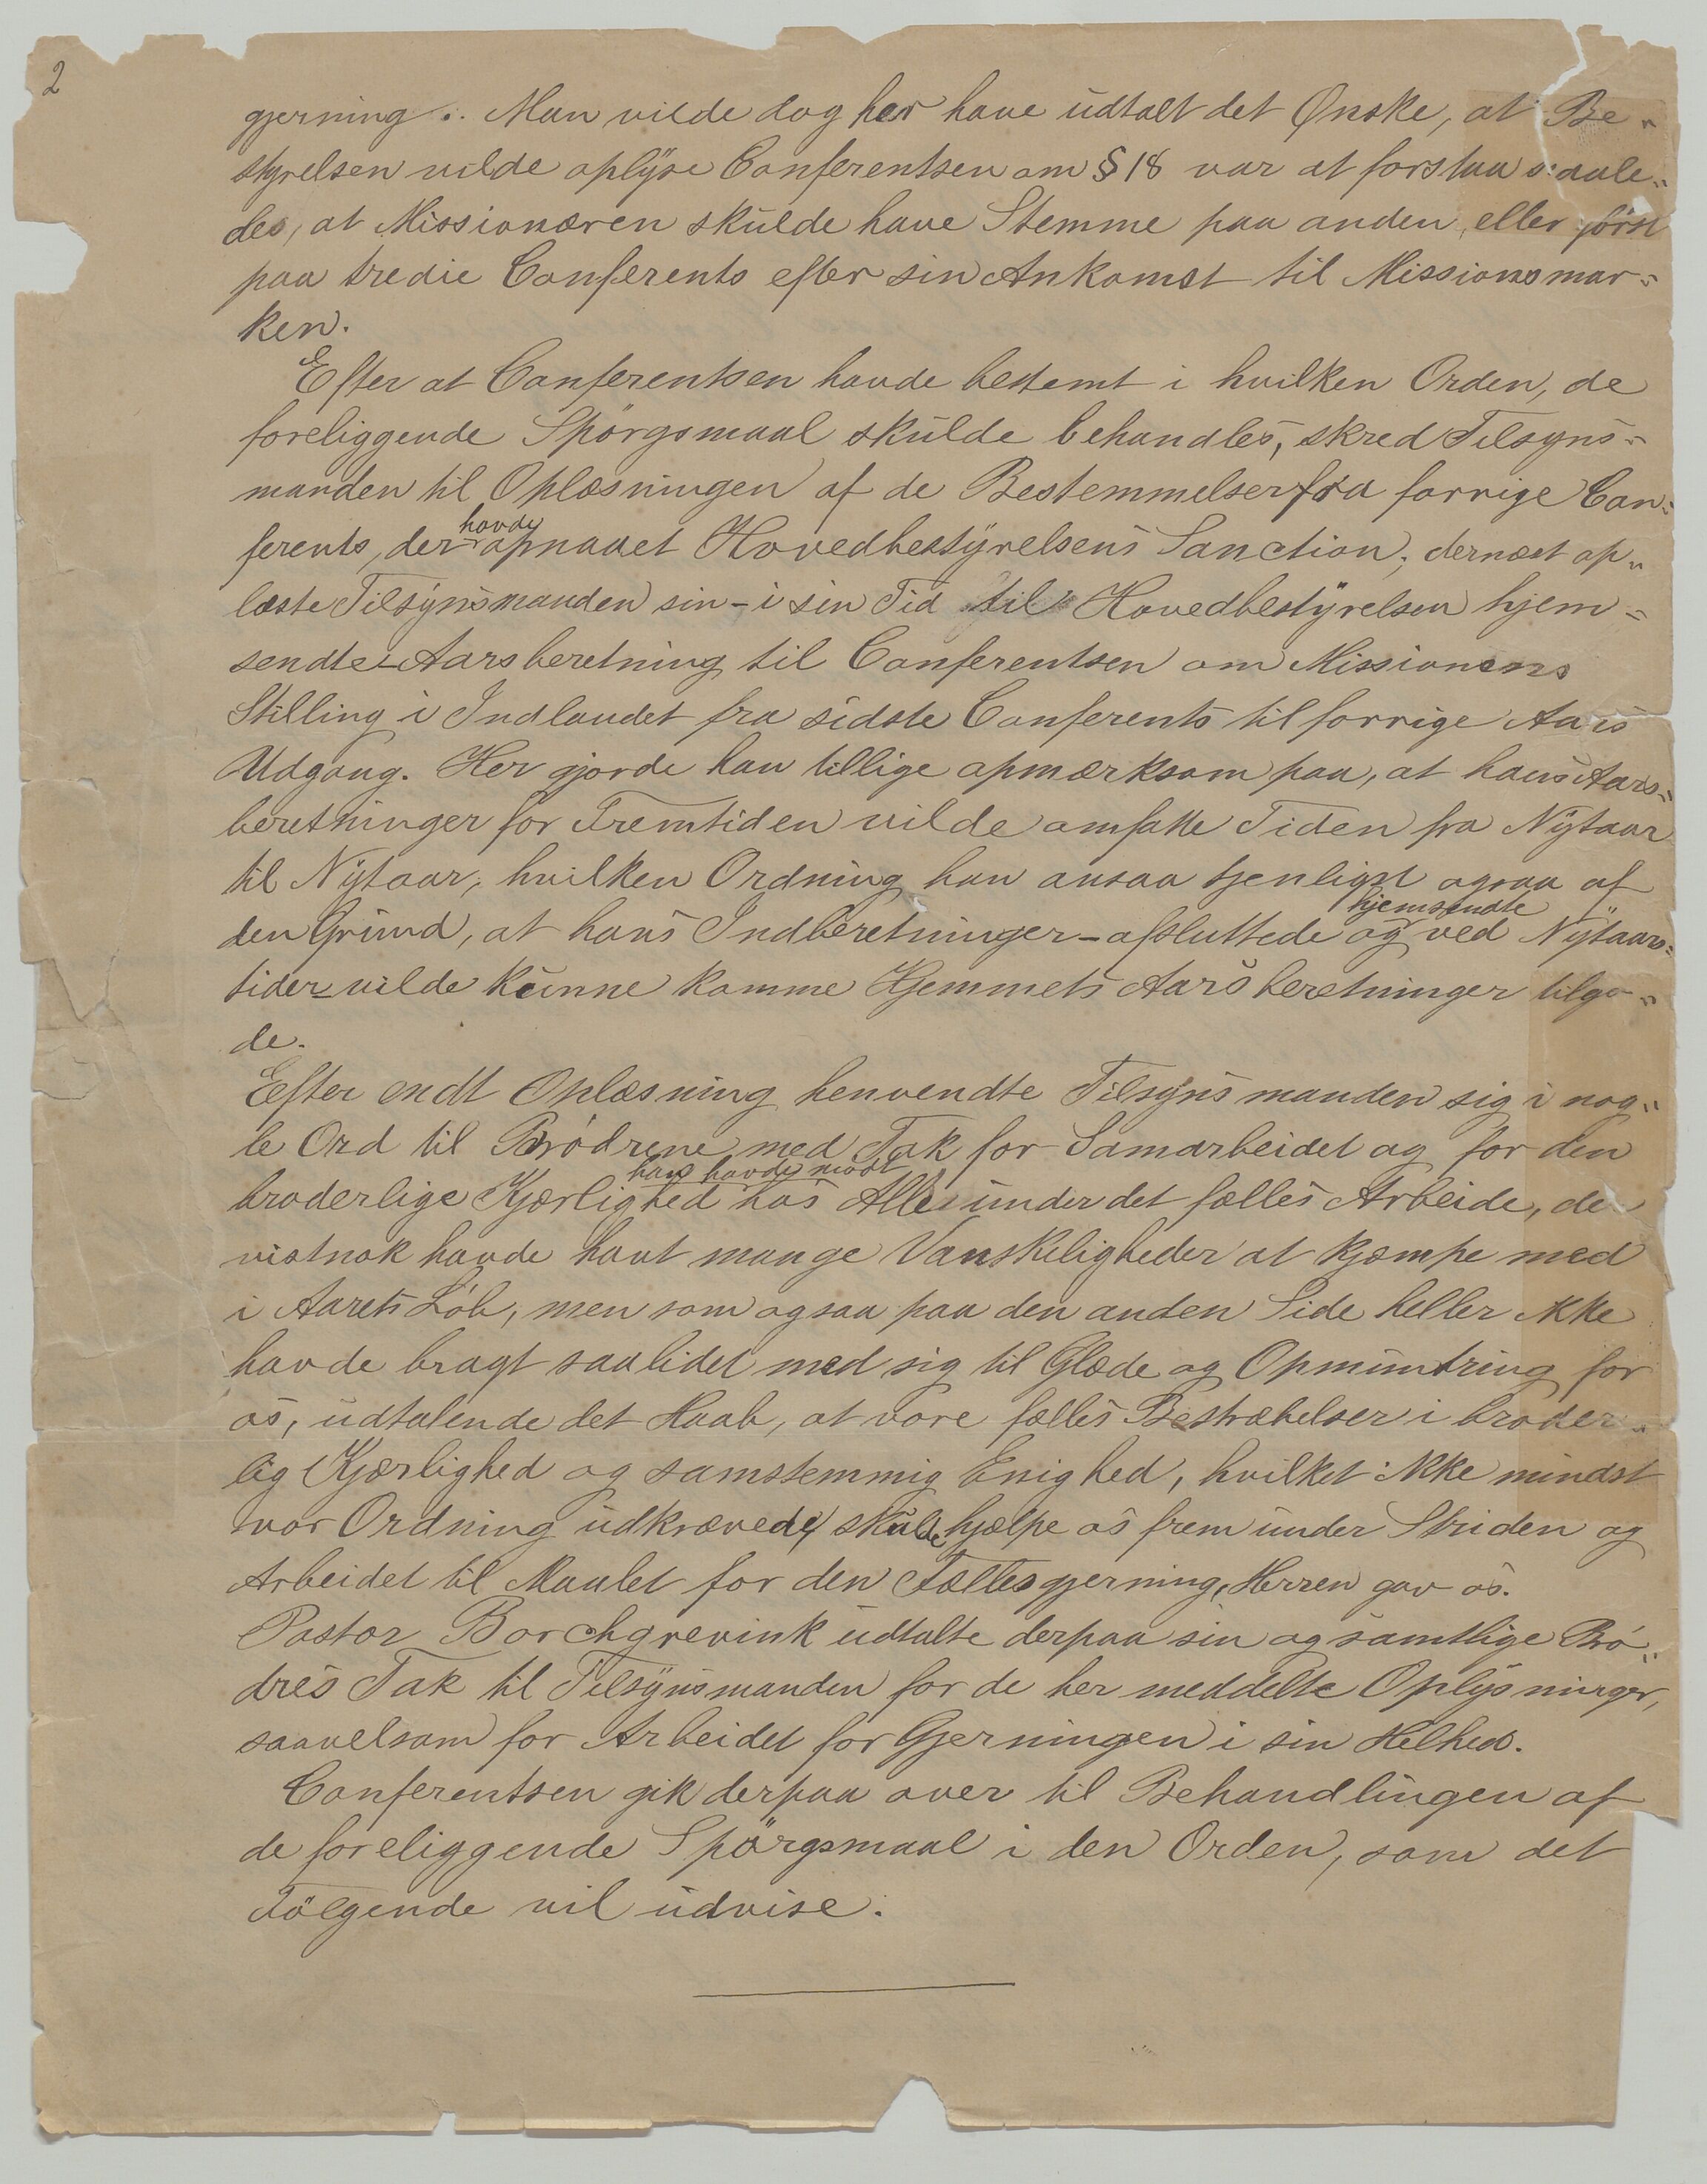 2
gjerning. Man vilde dog her have udtalt det Ønske, at Be-
styrelsen vilde oplyse Conferentsen om § 18 var at forstaa saale-
des, at Missionæren skulde have Stemme paa anden, eller først
paa tredie Conferents efter sin Ankomst til Missionsmar-
ken.
Efter at Conferentsen havde bestemt i hvilken Orden, de
foreliggende Spörgsmaal skulde behandles, skred Tilsyns-
manden til Oplæsningen af de Bestemmelser fra forrige Con-
ferents, der havde opnaaet Hovedbestyrelsens Sanction; dernæst op-
læste Tilsynsmanden sin - i sin Tid til Hovedbestyrelsen hjem-
sendte - Aarsberetning til Conferentsen om Missionens
Stilling i Indlandet fra sidste Conferents til forrige Aars
Udgang. Her gjorde han tillige opmærksom paa, at hans Aars-
beretninger for Fremtiden vilde omfatte Tiden fra Nytaar
til Nytaar, hvilken Ordning han ansaa tjenligst ogsaa af
den Grund, at hans Indberetninger - afsluttede og hjemsendte ved Nytaars-
tider - vilde kunne komme Hjemmets Aarsberetninger tilgo-
de.
Efter endt Oplæsning henvendte Tilsynsmanden sig i nog-
le Ord til Brødrene med Tak for Samarbeidet og for den
broderlige Kjærlighed han havde mödt hos Alle under det fælles Arbeide, der
vistnok havde havt mange Vanskeligheder at kjæmpe med
i Aarets Løb, men som ogsaa paa den anden Side heller ikke
havde bragt saalidet med sig til Glæde og Opmuntring for
os, udtalende det Haab, at vore fælles Bestræbelser i broder-
lig Kjærlighed og samstemmig Enighed, hvilket ikke mindst
vor Ordning udkrævede, skulde hjælpe os frem under Striden og
Arbeidet til Maalet for den Fællesgjerning, Herren gav os.
Pastor Borchgrevink udtalte derpaa sin og samtlige Brö-
dres Tak til Tilsynsmanden for de her meddelte Oplysninger,
saavelsom for Arbeidet for Gjerningen i sin Helhed.
Conferentsen gik derpaa over til Behandlingen af
de foreliggende Spörgsmaal i den Orden, som det
Fölgende vil udvise.